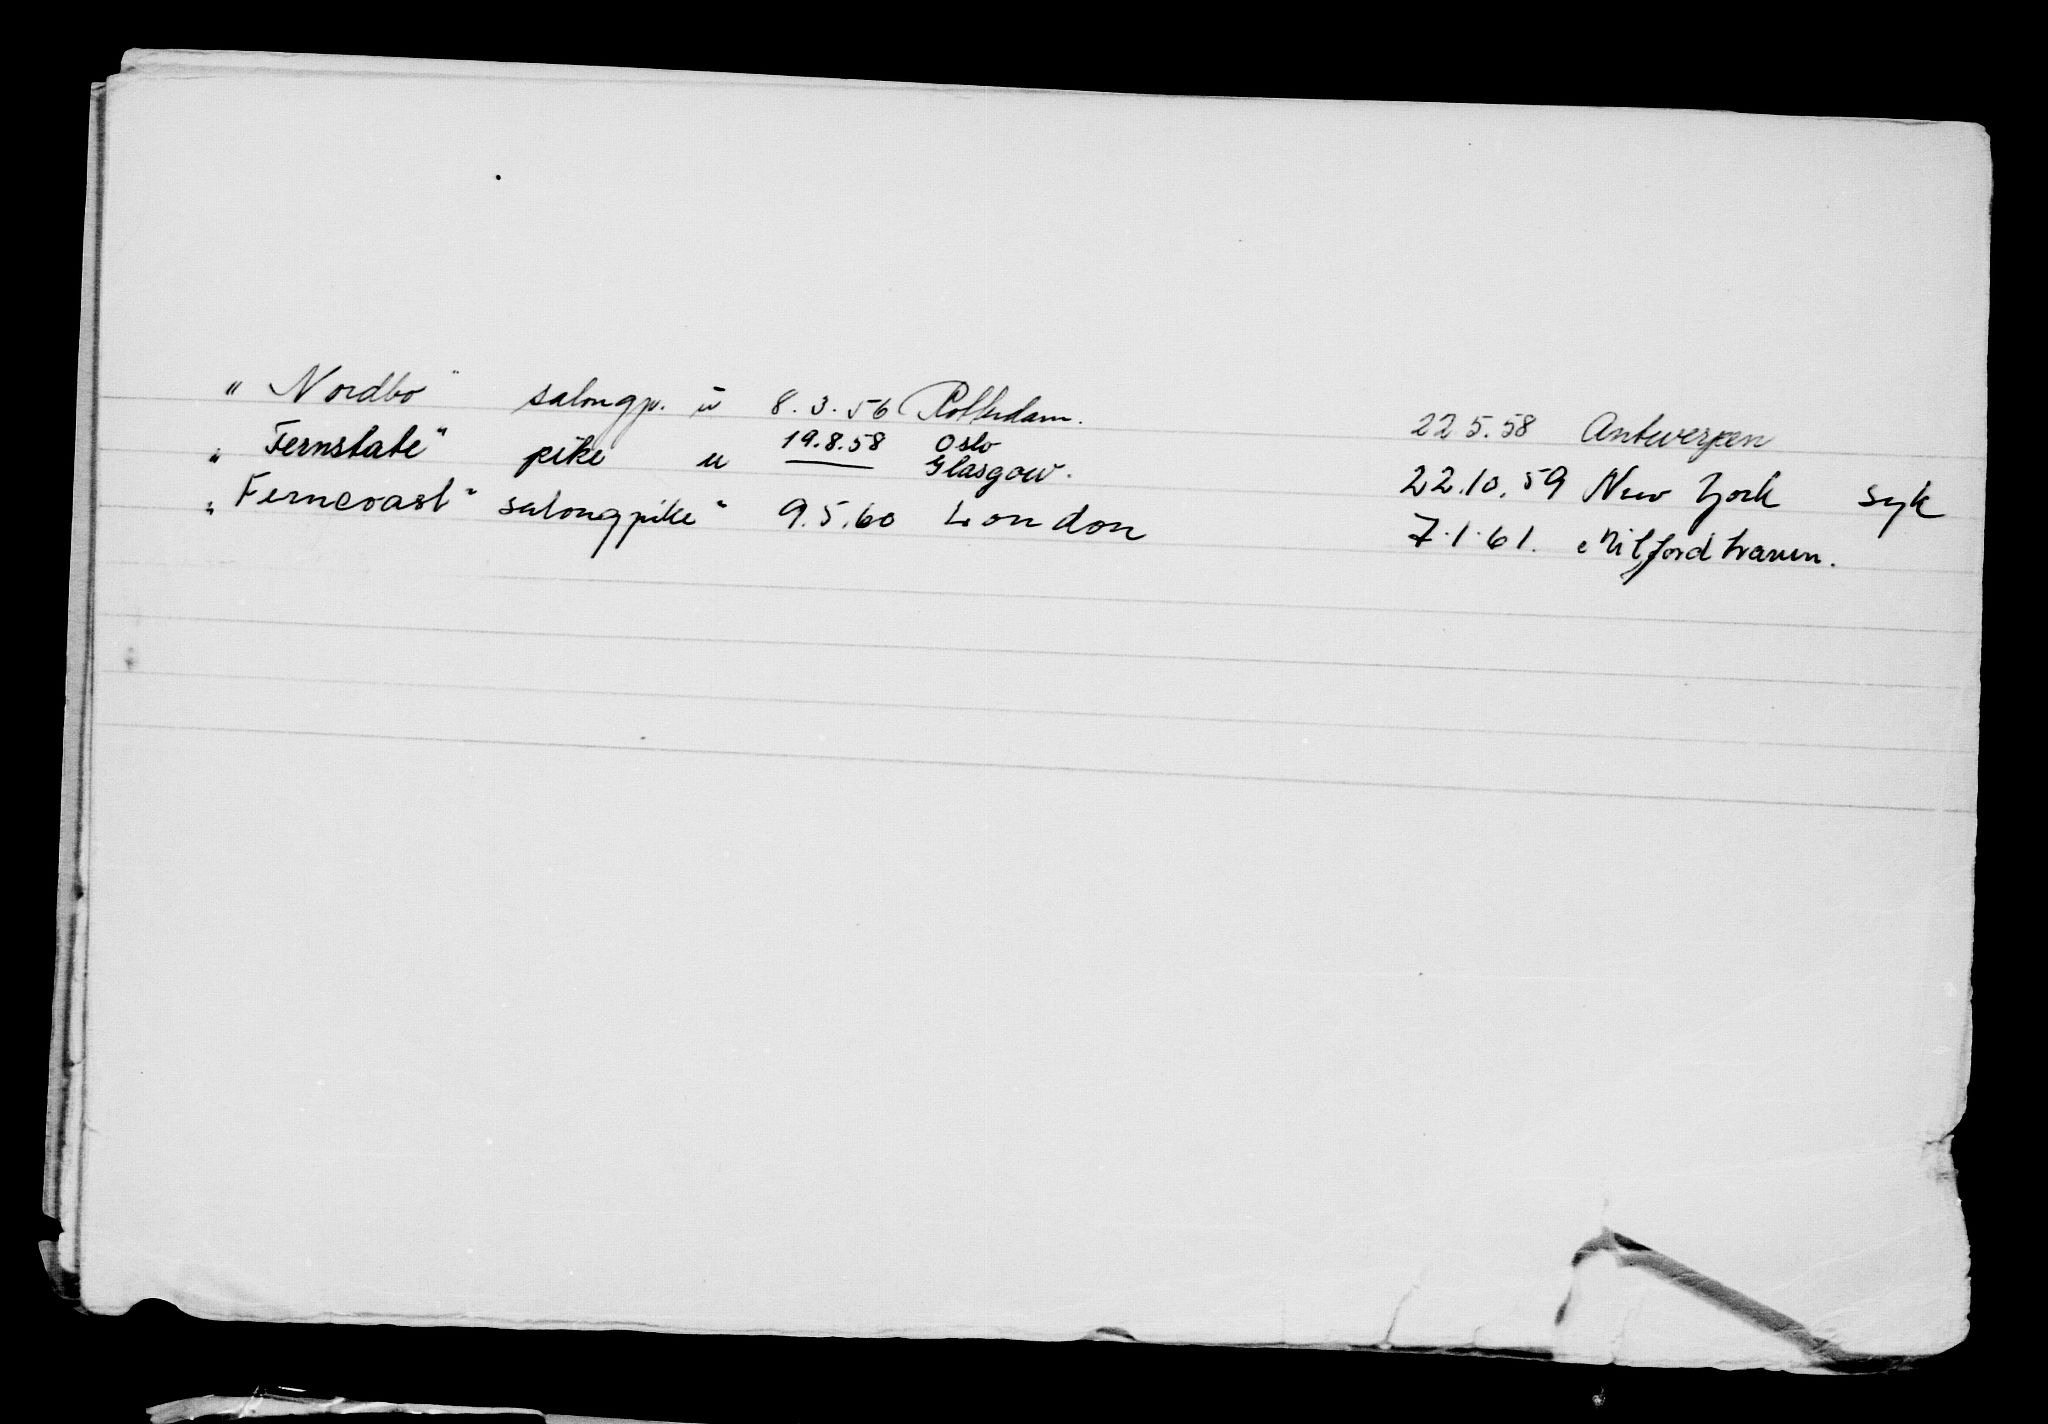 " Nordbo " salongp. u 8.3.56 Rotterdam. 22 5.58 Antwerpen
" Fernstate " pike u 19.8.58 Oslo Glasgow. 22.10.59 New York syk
" Ferncoast " salongpike " 9.5.60 London 7.1.61. Milford haven.